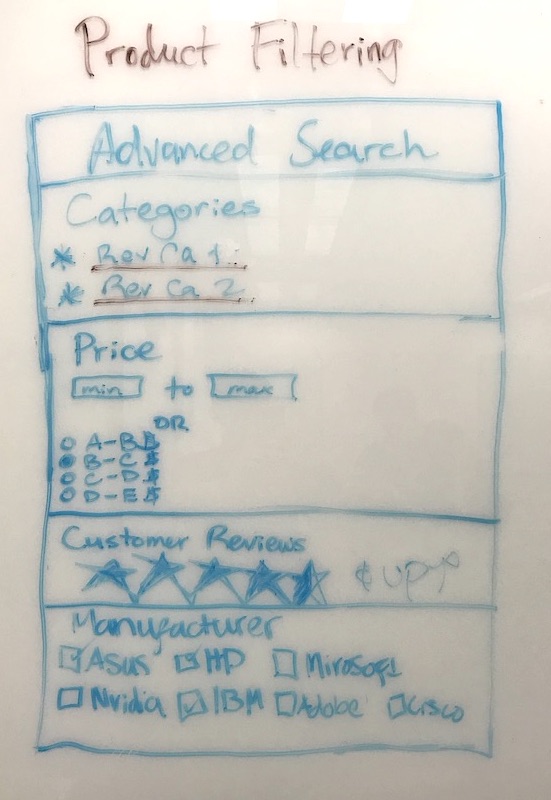 Product Filtering
Advanced Search
Categories
Rev Ca 1
Rev Ca 2
Price
min to max
OR
A-B $
B-C $
C-D $
D-E $
Customer Reviews
& up
Manufacturer
Asus HP Mirosoft
Nvidia IBM Adobe Cisco